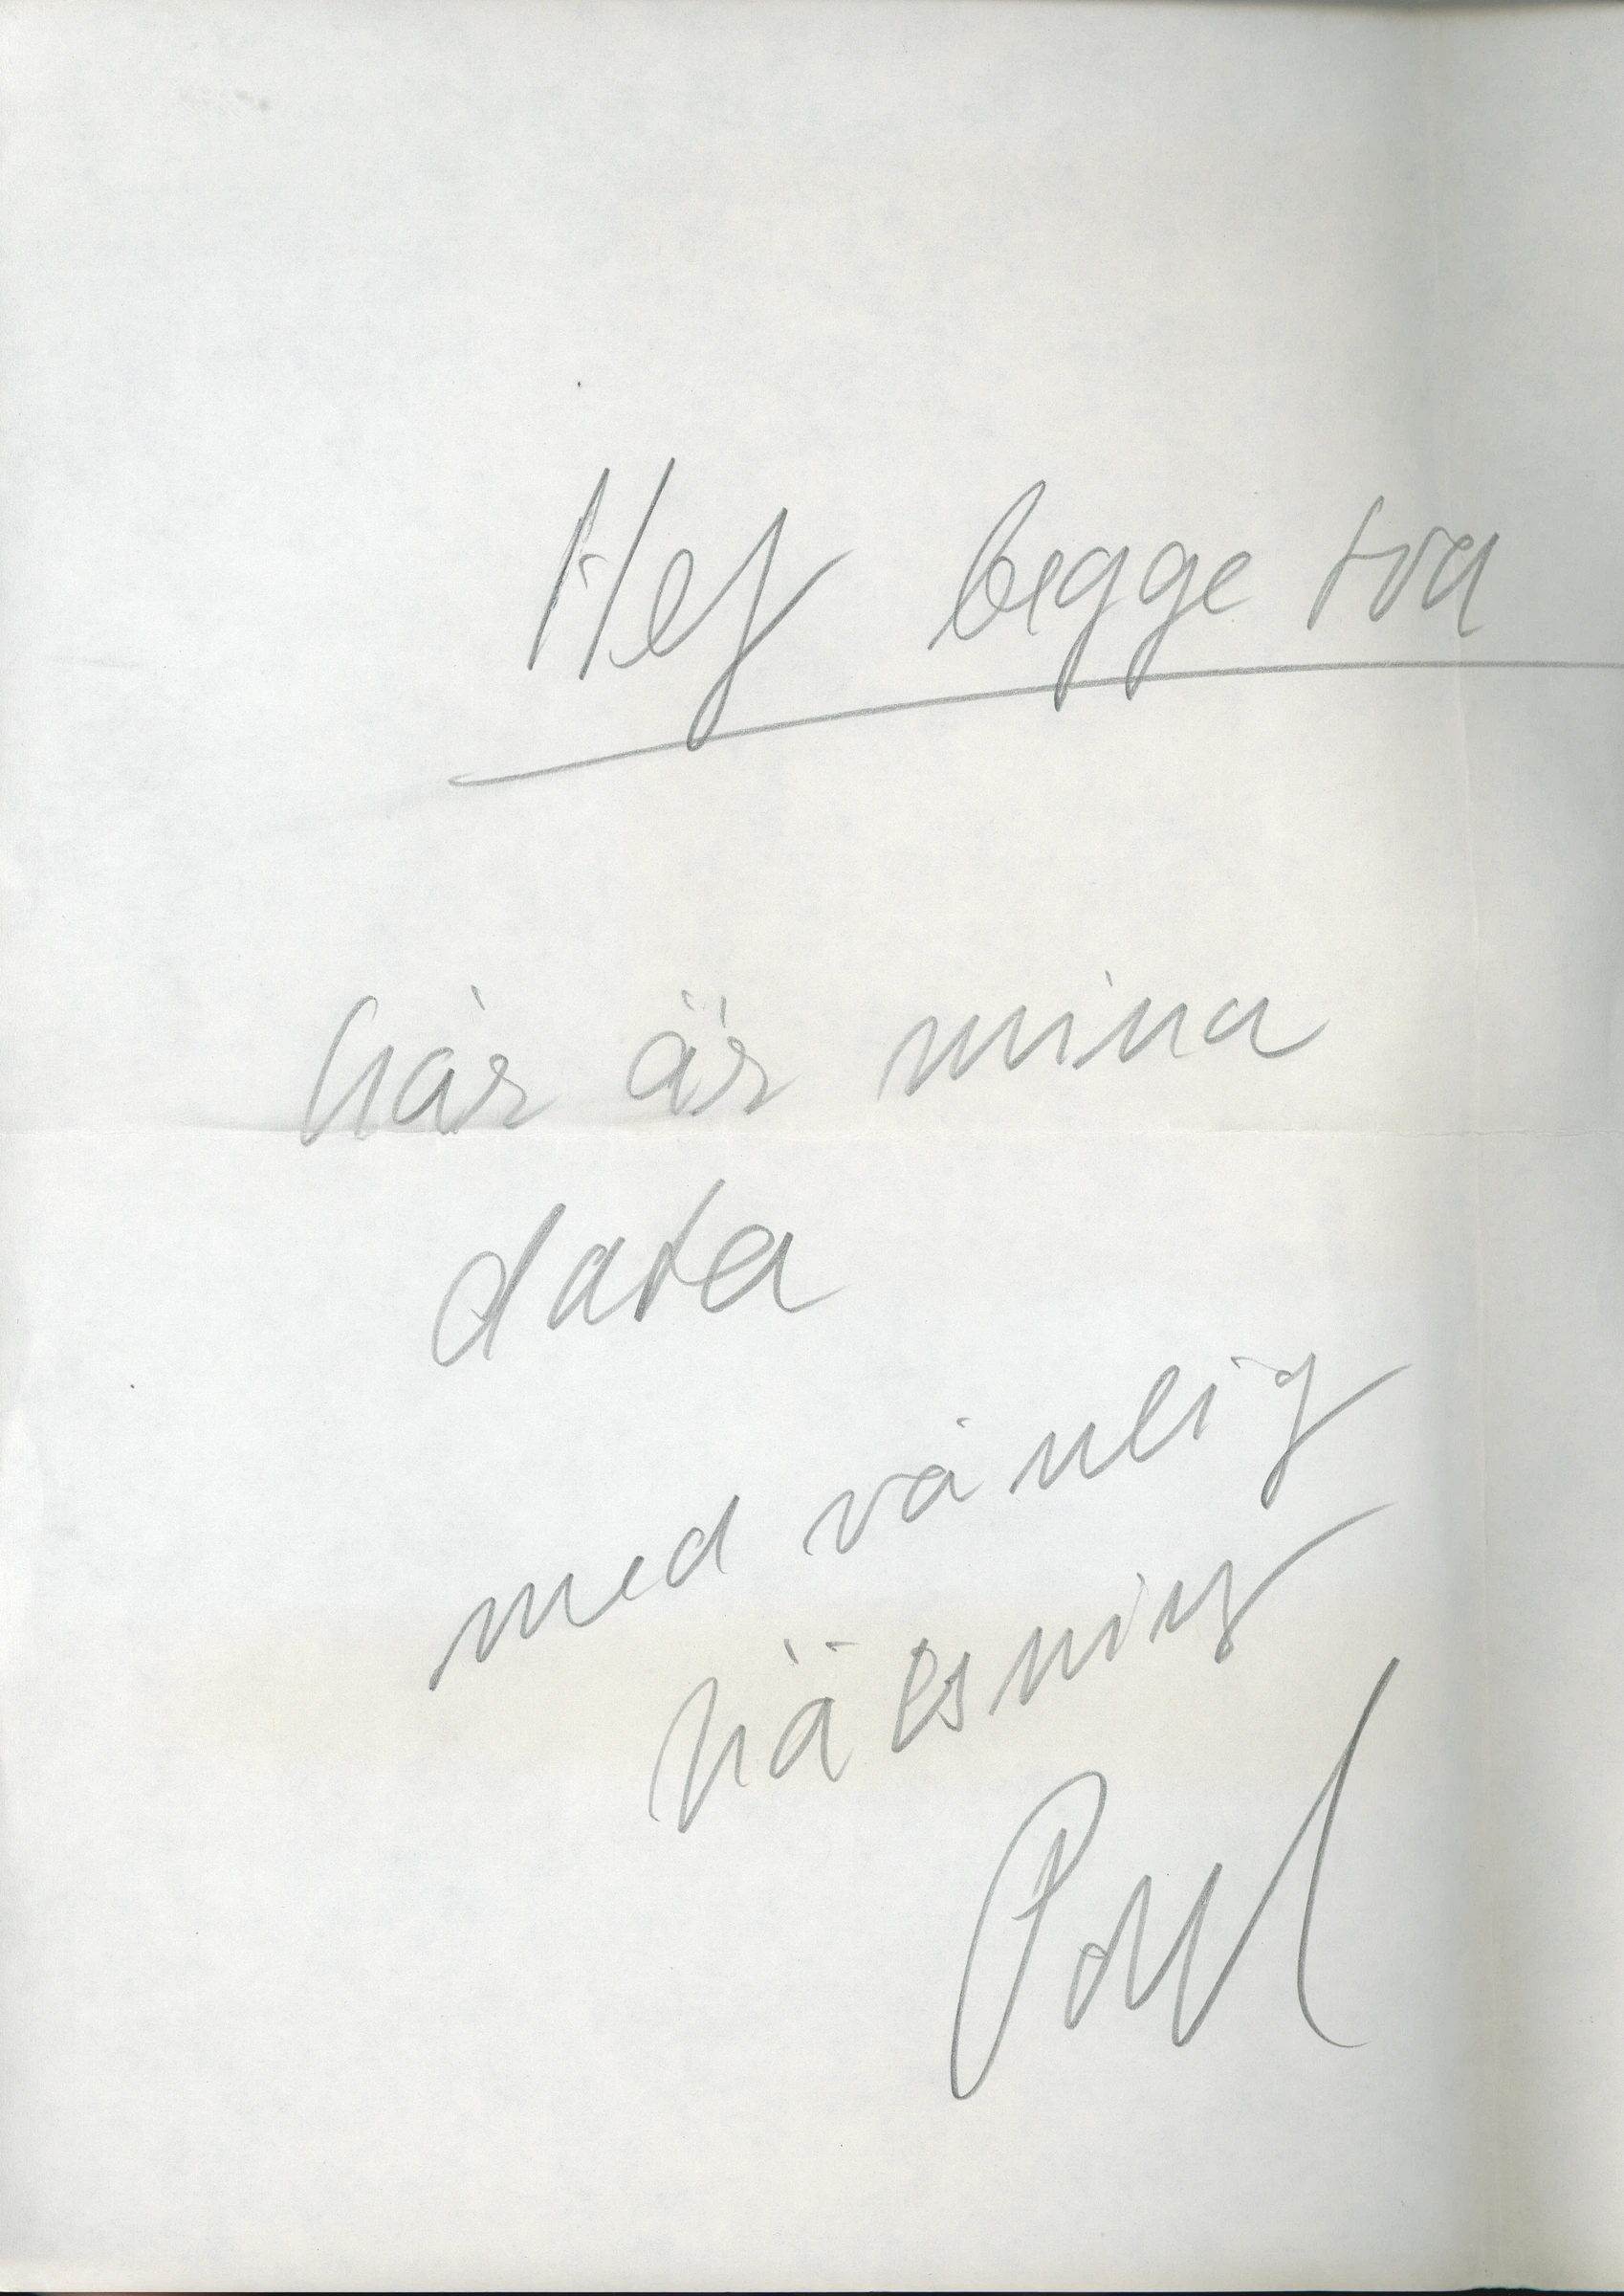 Hej begge tva
här är mina
data
med vänlig
hälsning
Poul